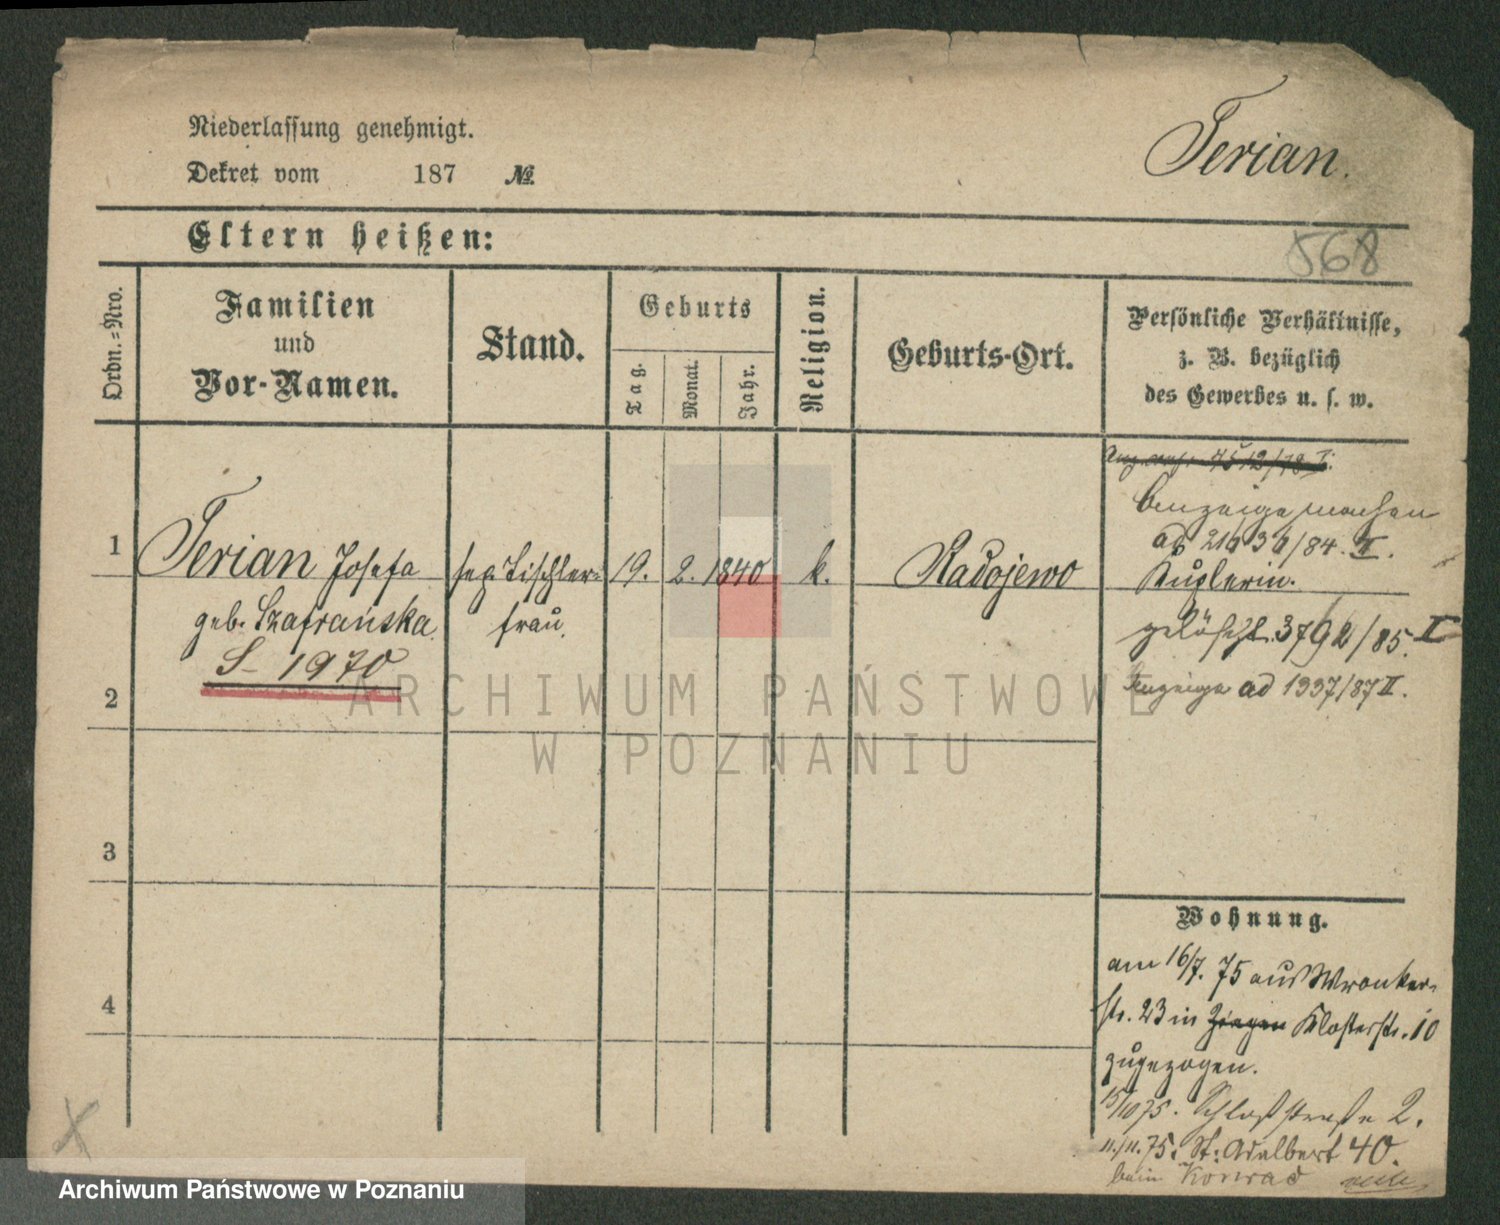 Niederlassung genehmigt.
Dekret vom 187 №
Terian.
Eltern heißen:
568
Ordn.=Nro.
Familien
und
Vor-Namen.
Stand.
Geburts
Tag.
Monat.
Jahr.
Religion.
Geburts-Ort.
Persönliche Verhältnisse,
z. B. bezüglich
des Gewerbes u. s. w.
4512/78 I.
1 Terian Josefa sep. Tischler= 19. 2. 1840 k. Radojewo
geb. Szafrańska frau.
S- 1970
ad 21636/84. II.
Kupplerin.
gelöscht 3792/85. I
Anzeige ad 1337/87 II.
2
3
4
Wohnung.
am 16/7. 75 aus Wronker=
str. 23 in Ziegen Klosterstr. 10
zugezogen.
15/10 75. Schloßstraße 2.
11./11. 75. St. Adalbert 40.
beim Konrad
ARCHIWUM PAŃSTWOWE
W POZNANIU
Archiwum Państwowe w Poznaniu